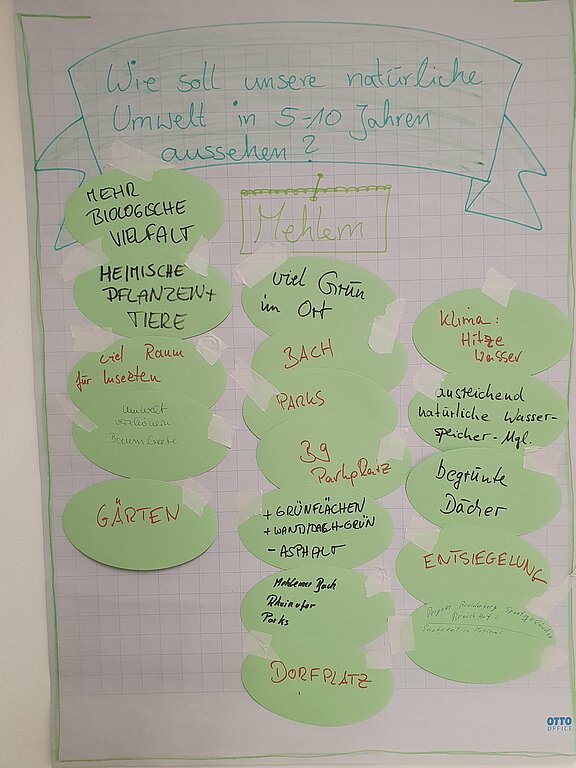 Wie soll unsere natürliche
Umwelt in 5-10 Jahren
aussehen?
Mehlem
MEHR
BIOLOGISCHE
VIELFALT
HEIMISCHE
PFLANZEN +
TIERE
viel Raum
für Insekten
Umwelt
verschönern
Baumbeete
GÄRTEN
viel Grün
im Ort
BACH
PARKS
B9
Parkplatz
+ GRÜNFLÄCHEN
+ WAND/DACH-GRÜN
- ASPHALT
Mehlemer Bach
Rheinufer
Parks
DORFPLATZ
Klima:
Hitze
Wasser
ausreichend
natürliche Wasser-
speicher-Mgl.
begrünte
Dächer
ENTSIEGELUNG
Projekt
in Mehlem
OTTO
OFFICE